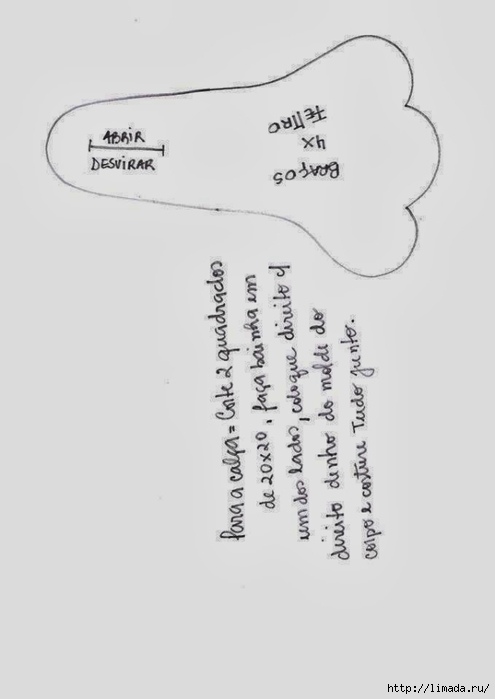 ABRIR
DESVIRAR
BRAÇOS
4X
FELTRO
Para a calça = Corte 2 quadrados
de 20x20, faça bainha em
um dos lados, coloque direito c/
direito dentro do molde do
corpo e costure Tudo junto.
http://limada.ru/